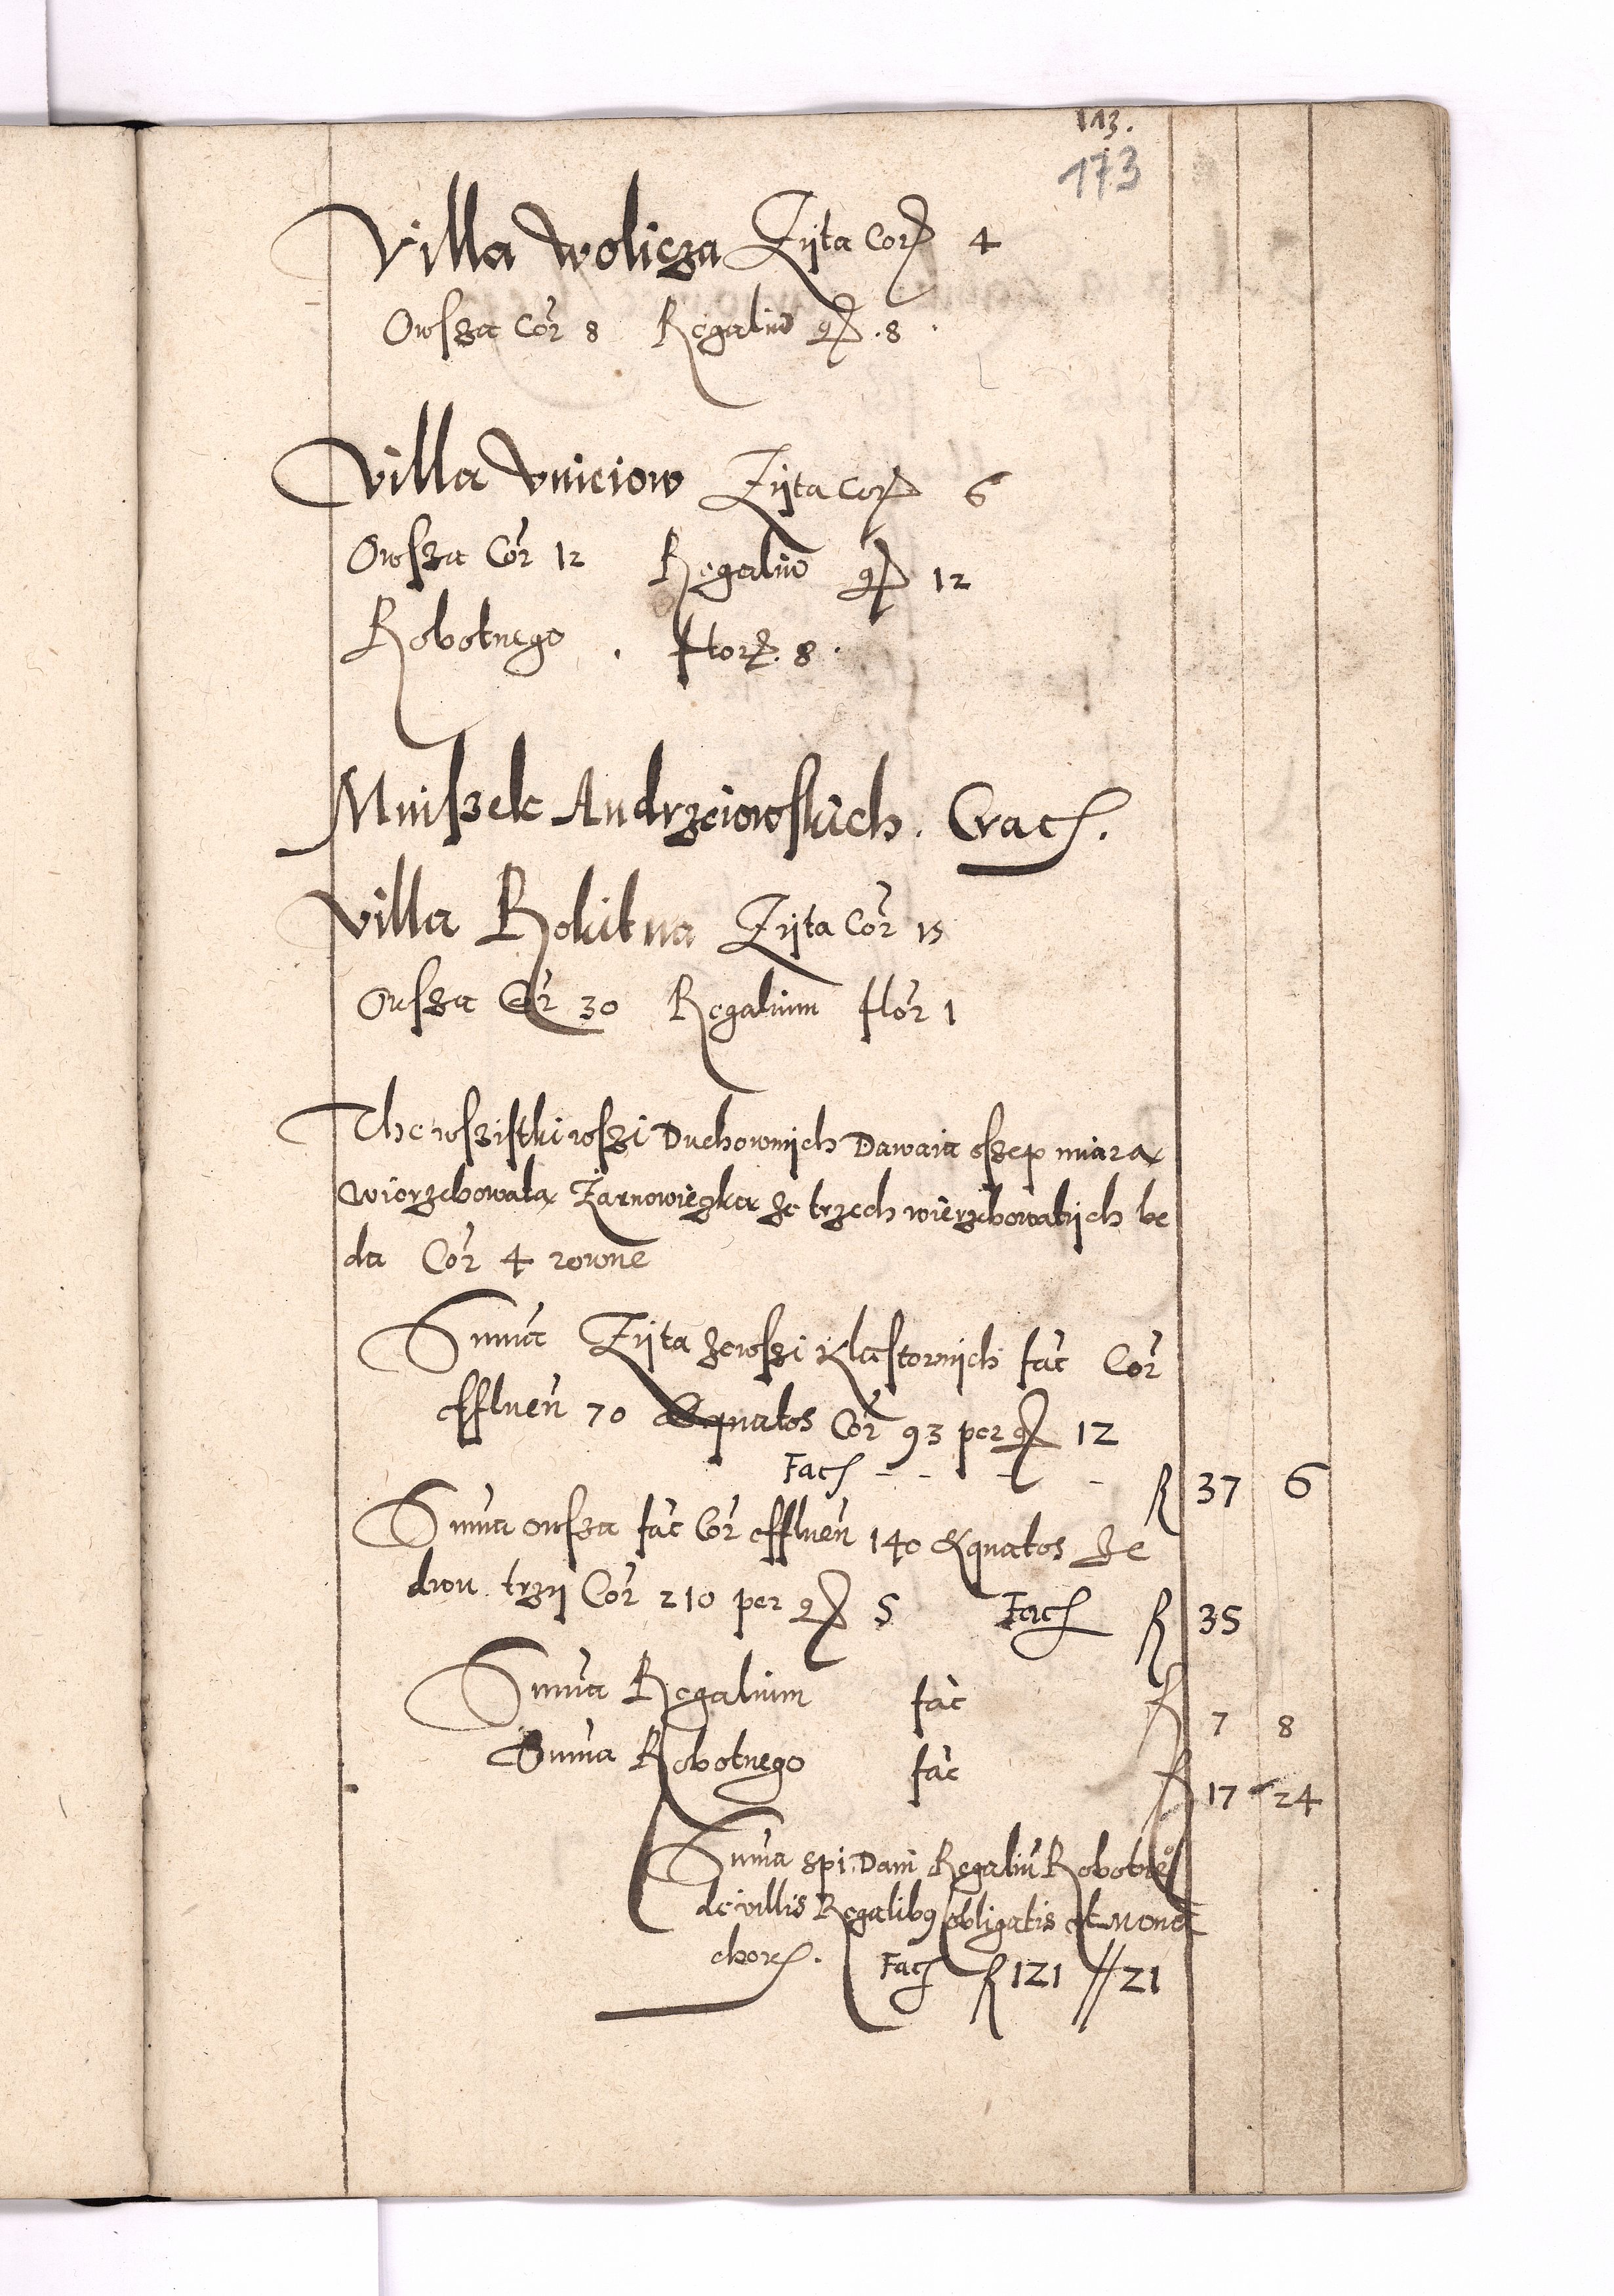 113.
173
Villa Wolicza Zijta Cor 4
Owsza Cor 8 Regaliu gr .8.
Villa Vniciow Zijta Cor 6
Owsza Cor 12 Regaliu gr 12
Robotnego . flor. 8.
Mniszek Andrzeiowskich. Crac.
Villa Rokitna Zijta Cor 15
Owsza Cor 30 Regalium flor 1
The wszistki wszi Duchownijch Dawaia oszep miara
wierzchowata Zarnowiezka ze trzech wierzchowatijch be
da Cor 4 rowne
Suma Zijta zewszi Klastornijch fac Cor
effluen 70 Equatos Cor 93 per gr 12
Fac - - - - fl 37 6
Suma owsza fac Cor effluen 140 Equatos ze
dwu trzij Cor 210 per gr 5 Fac fl 35
Suma Regalium fac fl 7 8
Suma Robotnego fac fl 17 24
Suma spi: Dani Regaliu Robotne
de villis Regalibus obligatis et Mona
chor. Fac fl 121 // 21